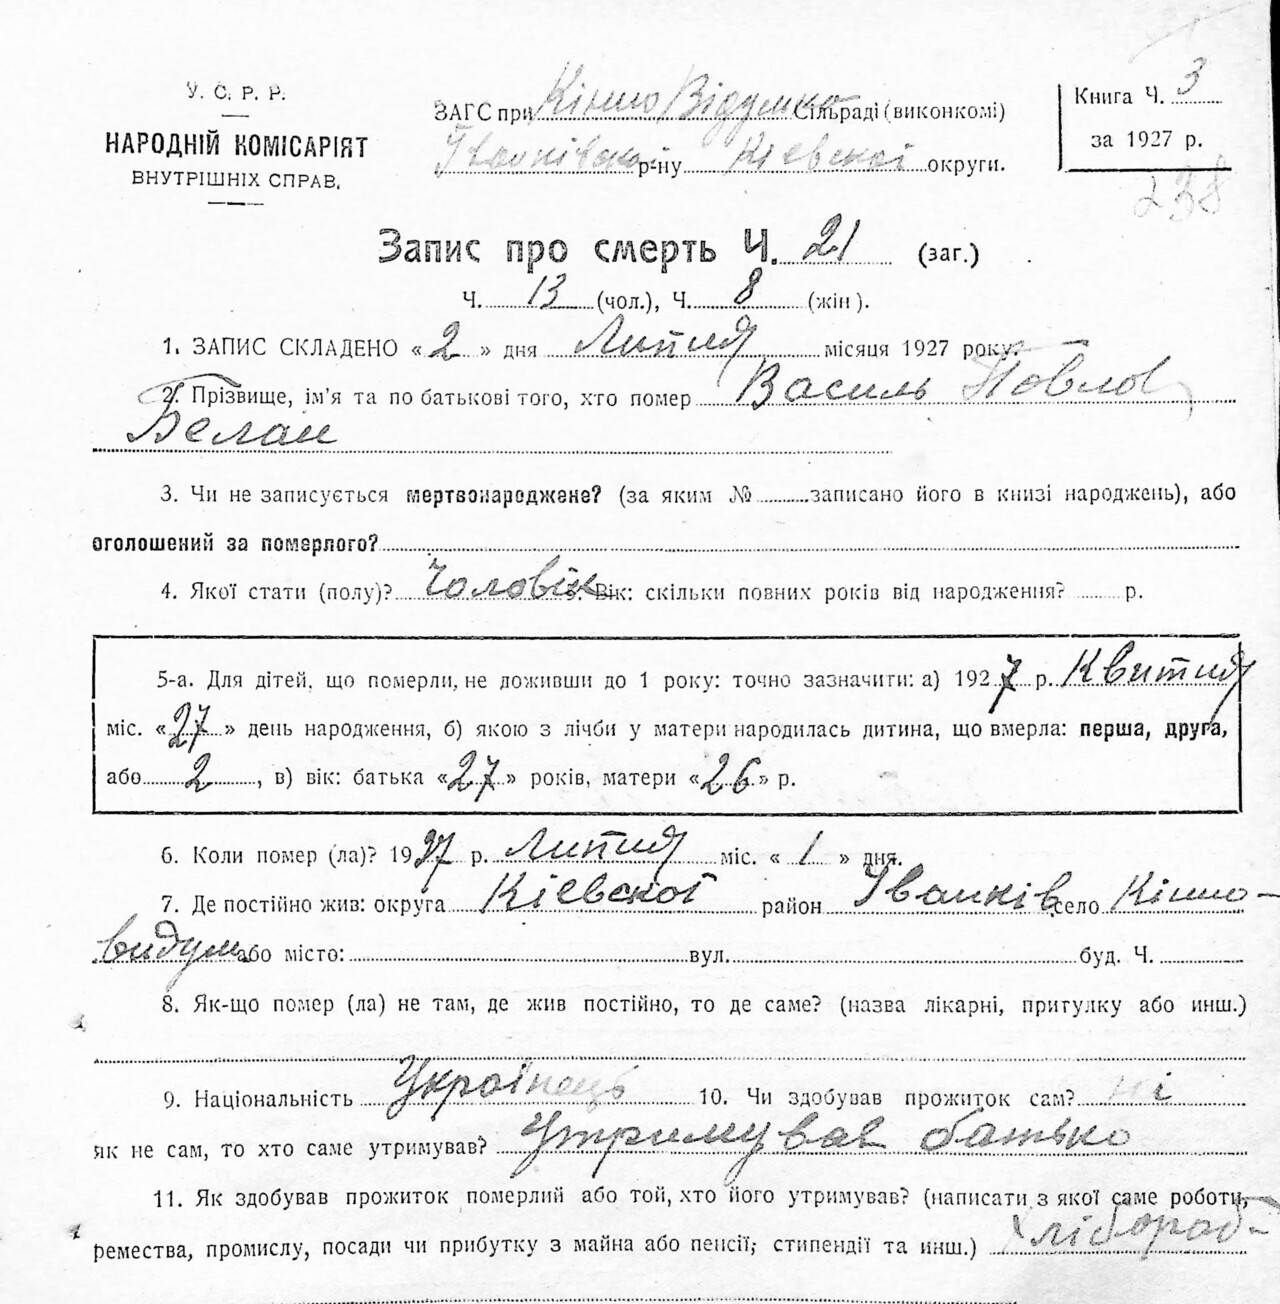 У. С. Р. Р.
НАРОДНІЙ КОМІСАРІЯТ
ВНУТРІШНІХ СПРАВ.
ЗАГС при Кіншо Відумко Сільраді (виконкомі)
Іванківско р-ну Кієвскої округи.
Книга Ч. 3
за 1927 р.
238
Запис про смерть Ч. 21 (заг.)
Ч. 13 (чол.), Ч. 8 (жін).
1. ЗАПИС СКЛАДЕНО « 2 » дня Липня місяця 1927 року.
2. Прізвище, ім'я та по батькові того, хто помер Василь Повлов
Белан
3. Чи не записується мертвонароджене? (за яким № записано його в книзі народжень), або
оголошений за померлого?
4. Якої стати (полу)? Чоловік 5. Вік: скільки повних років від народження? р.
5-а. Для дітей, що померли, не доживши до 1 року: точно зазначити: а) 1927 р. Квитня
міс. « 27 » день народження, б) якою з лічби у матери народилась дитина, що вмерла: перша, друга,
або 2, в) вік: батька « 27 » років, матери « 26 » р.
6. Коли помер (ла)? 1927 р. Липня міс. « 1 » дня.
7. Де постійно жив: округа Кієвскої район Іванків село Кіншо-
видум або місто: вул. буд. Ч.
8. Як-що помер (ла) не там, де жив постійно, то де саме? (назва лікарні, притулку або инш.)
9. Національність Українець 10. Чи здобував прожиток сам? ні
як не сам, то хто саме утримував? Утримував батько
11. Як здобував прожиток померлий або той, хто його утримував? (написати з якої саме роботи,
ремества, промислу, посади чи прибутку з майна або пенсії, стипендії та инш.) хлібороб-